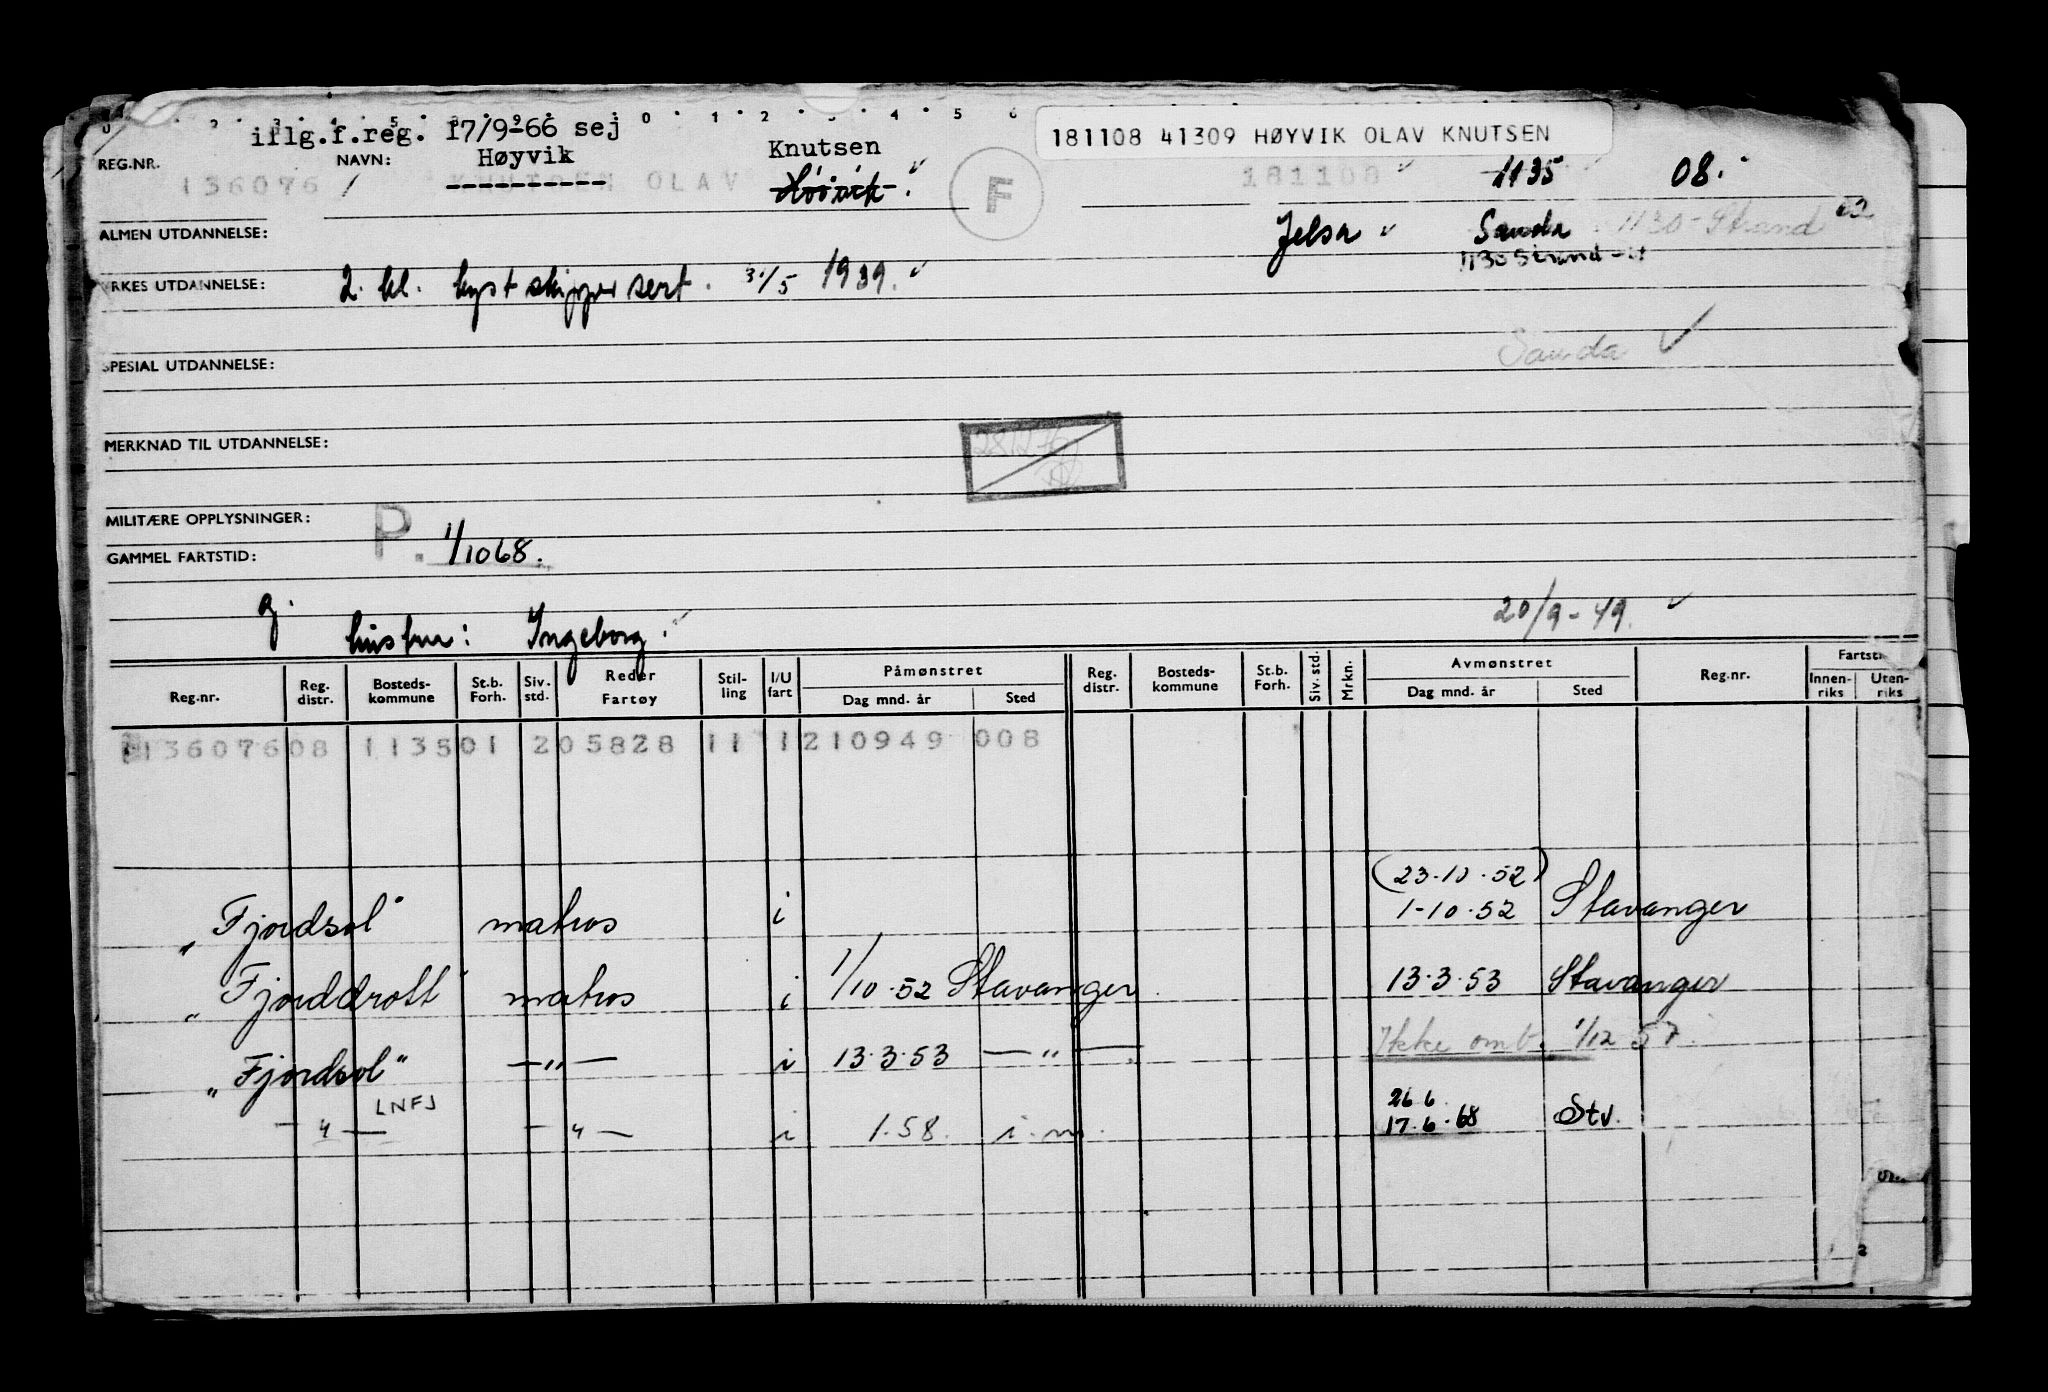 iflg.f.reg. 17/9-66 sej
181108 41309 HØYVIK OLAV KNUTSEN
REG.NR. NAVN: Høyvik Knutsen
136076 / KNUTSEN OLAV Høivik. F 181108 1135 08.
ALMEN UTDANNELSE: Jelsa Sauda 1130-Strand
1130 Strand
YRKES UTDANNELSE: 2. kl. kystskipper sert. 31/5 1939.
Sauda
SPESIAL UTDANNELSE:
MERKNAD TIL UTDANNELSE:
MILITÆRE OPPLYSNINGER:
GAMMEL FARTSTID: P. 1/10 68.
g. hustru: Ingeborg. 20/9-49.
Reg.nr. Reg. distr. Bosteds-kommune St.b. Forh. Siv. std. Reder Fartøy Stil-ling I/U fart Påmønstret Dag mnd. år Sted Reg. distr. Bosteds-kommune St.b. Forh. Siv. std. Mrkn. Avmønstret Dag mnd. år Sted Reg.nr. Fartsti Innen-riks Uten-riks
13607608 113501 205828 11 1210949 008
(23.10.52)
„Fjordsol" matros i 1-10.52 Stavanger
„Fjorddrott" matros i 1/10.52 Stavanger 13.3.53 Stavanger
„Fjordsol" — „ — i 13.3.53 — „ — Ikke omb. 1/12 57.
LNFJ
— „ — — „ — i 1.58. i.m. 26 6. 17.6.68 Stv.